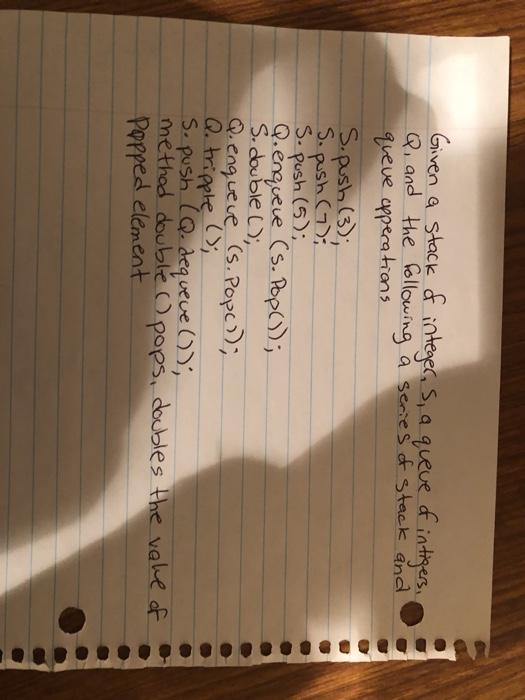 Given a stack of integer, S, a queue of intigers,
Q, and the following a series of stack and
queue opperations
S. push (3);
S. push (7);
S. push (5);
Q. enqueue (S. Pop());
S. double ();
Q. enqueue (S. Pop());
Q. tripple ();
S. push (Q. dequeue ());
method double () pops, doubles the value of
Popped element